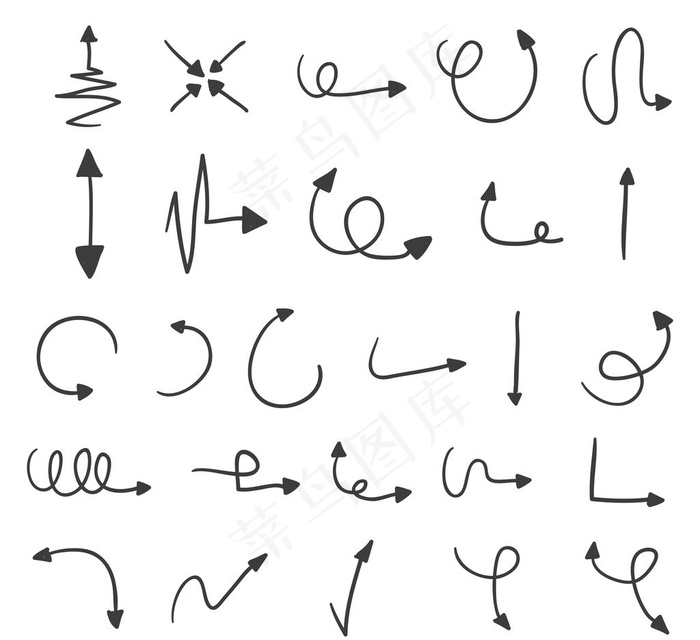 菜鸟图库
菜鸟图库